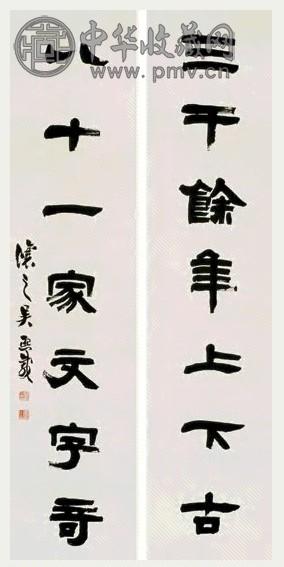 中华收藏网
www.pmv.cn
三千餘年上下古
八十一家文字奇
讓之吳熙載